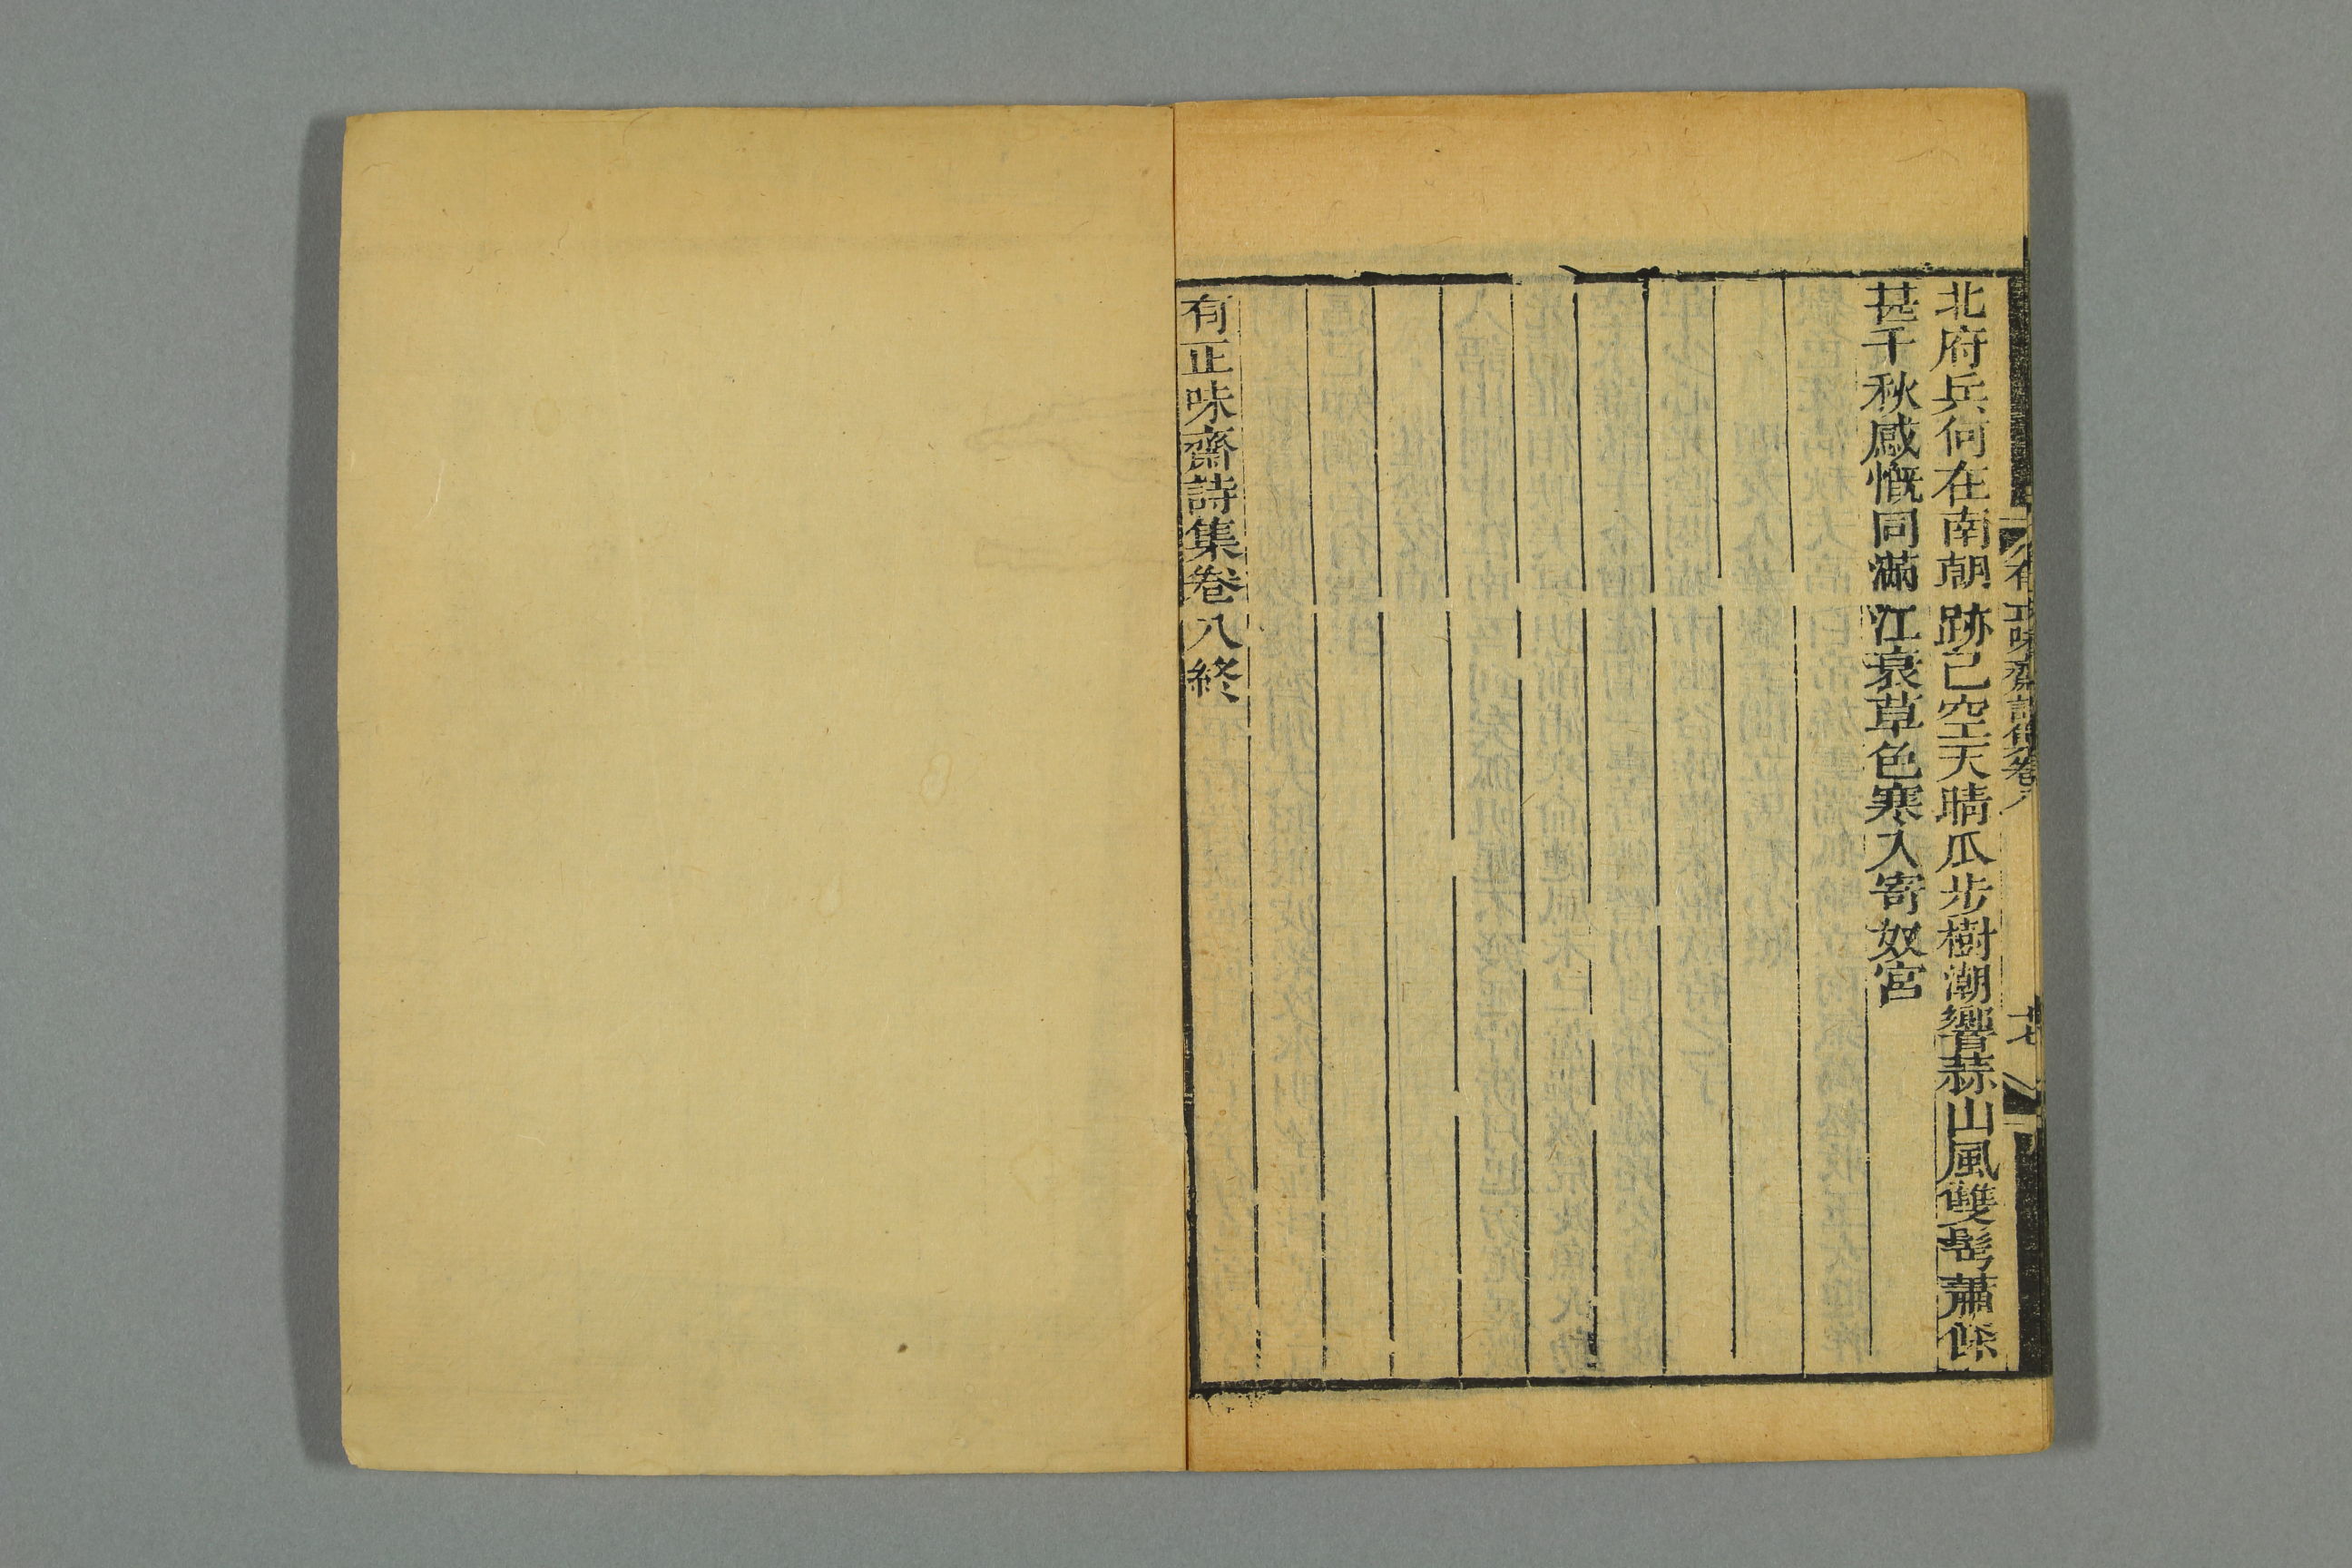 北府兵何在南朝跡已空天晴瓜步樹潮響蒜山風雙髩蕭條
甚千秋感慨同滿江衰草色寒入寄奴宮
有正味齋詩集卷八終
有正味齋詩集卷八
十七